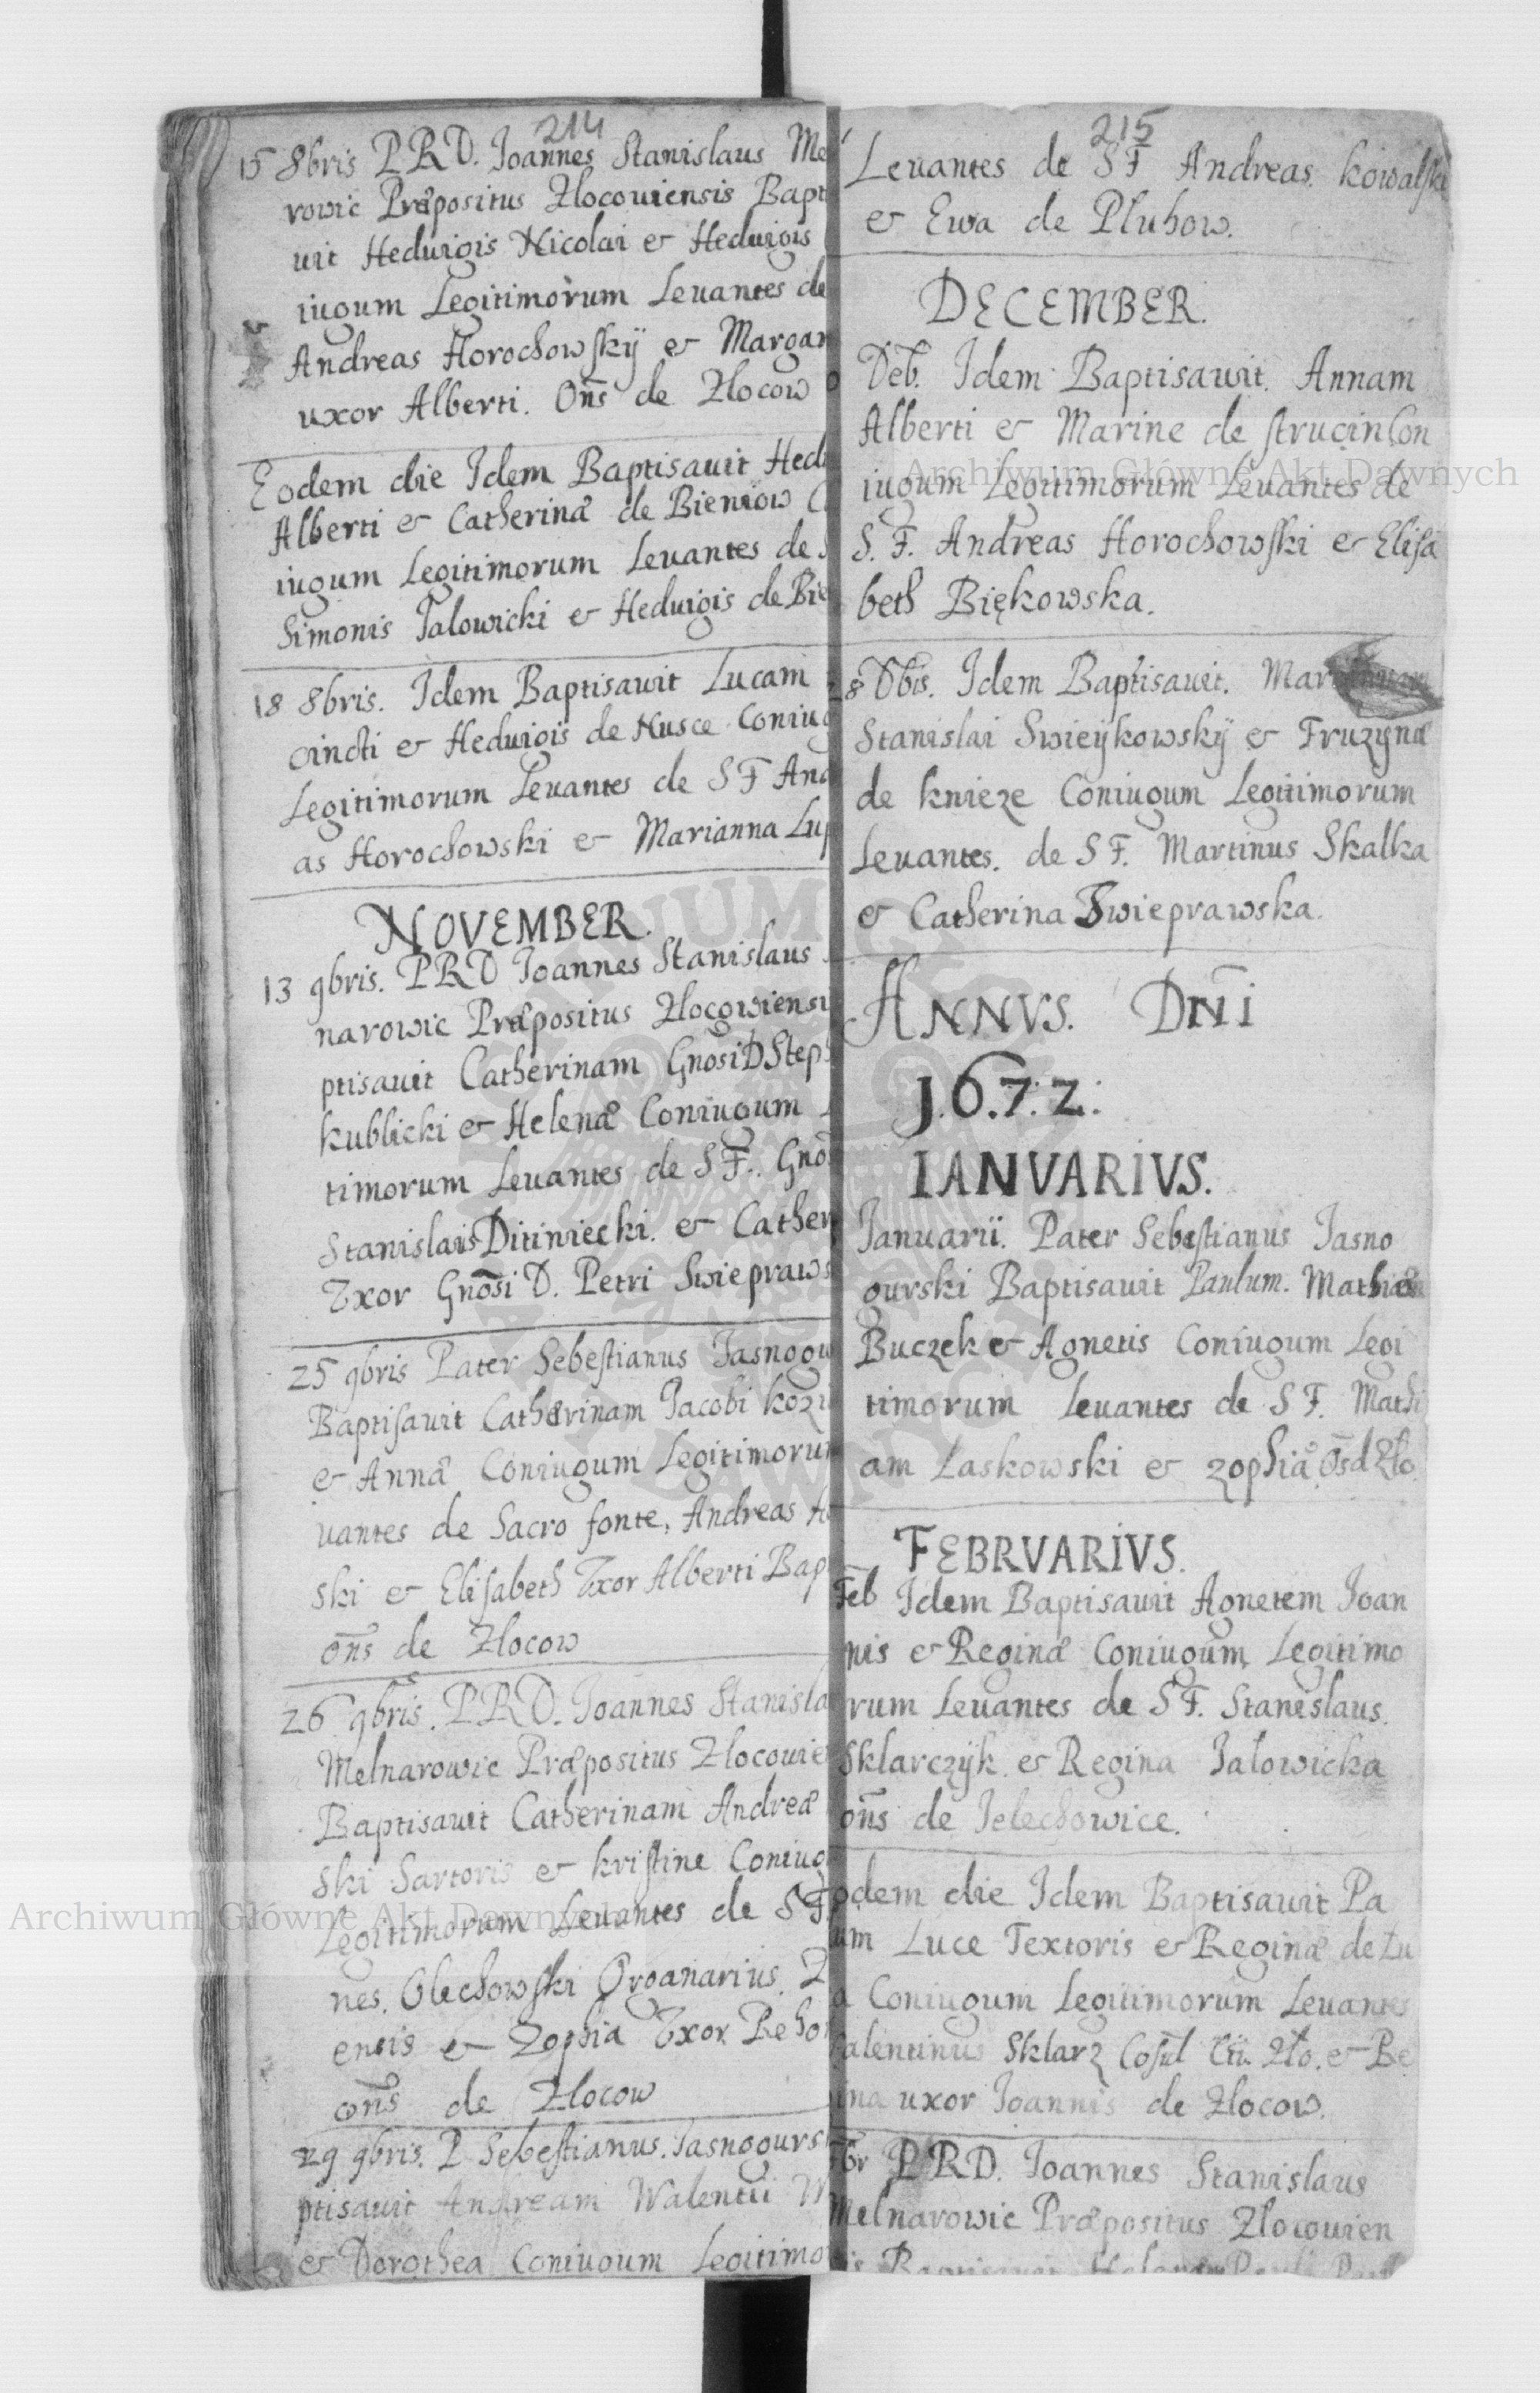 214
15 8bris P.R.D. Joannes Stanislaus Me
rowic Præpositus Zlocouiensis Bapt
uit Heduigis Nicolai & Heduigis
iugum Legitimorum Leuantes de
Andreas Horochowskÿ & Margar
uxor Alberti. Oñs de Zlocow
Eodem die Idem Baptisauit Hedu
Alberti & Catherinæ de Bieniow C
iugum Legitimorum Leuantes de S
Simonis Jalowicki & Heduigis de Bie
18 8bris. Idem Baptisauit Lucam
cincti & Heduigis de Nusce Coniug
Legitimorum Leuantes de S F And
as Horochowski & Marianna Lup
NOVEMBER.
13 9bris. P.R.D Joannes Stanislaus
narowic Præpositus Zlocowiensis
ptisauit Catherinam Gnosi D Steph
kublicki & Helenæ Coniugum
timorum Leuantes de S F. Gnos
Stanislaus Ditiniecki. & Cather
Vxor Gnosi D. Petri Swiepraws
25 9bris Pater Sebestianus Jasnogu
Baptisauit Catherinam Jacobi kozi
& Annæ Coniugum Legitimorum
uantes de Sacro fonte, Andreas Ho
ski & Elisabeth Vxor Alberti Bap
oñs de Zlocow
26 9bris. P.R.D. Joannes Stanisla
Melnarowic Præpositus Zlocouie
Baptisauit Catherinam Andreæ
ski Sartoris & kristine Coniug
Legitimorum Leuantes de S F.
nes. Olechowski Organarius. Z
ensis & Zophia Vxor Rehor
oñs de Zlocow
29 9bris. P Sebestianus. Jasnogurs
ptisauit Andream Walentii W
& Dorothea Coniugum Legitimo
215
Leuantes de S F Andreas. kowalski
& Ewa de Pluhow.
DECEMBER.
Deb. Idem Baptisauit. Annam
Alberti & Marine de strucin Con
iugum Legitimorum Leuantes de
S. F. Andreas Horochowski & Elisa
beth Biękowska.
28 Dbis. Idem Baptisauit. Mar
Stanislai Swieÿkowskÿ & Fruzynæ
de knieze Coniugum Legitimorum
Leuantes. de S F. Martinus Skalka
& Catherina Swieprawska.
ANNVS. DNI
J.6.7.2.
IANVARIVS.
Januarii. Pater Sebestianus Jasno
gurski Baptisauit Paulum. Mathiæ
Buczek & Agnetis Coniugum Legi
timorum Leuantes de S F. Mathi
am Laskowski & zophiæ. Osd Zło.
FEBRVARIVS.
Feb Idem Baptisauit Agnetem Joan
nis & Reginæ Coniugum Legitimo
rum Leuantes de S F. Stanislaus.
Sklarczÿk. & Regina Jałowicka
oñs de Jelechowice.
odem die Idem Baptisauit Pa
um Luce Textoris & Reginæ de Lu
a Coniugum Legitimorum Leuantes
alentinus Sklarz Cosul Zło. & Re
ina uxor Joannis de Zlocow.
P.R.D. Joannes Stanislaus
Melnarowic Præpositus Zlocouien
is Baptisauit Helenam Pauli
Archiwum Główne Akt Dawnych
Archiwum Główne Akt Dawnych
ARCHIWUM GŁÓWNE AKT DAWNYCH